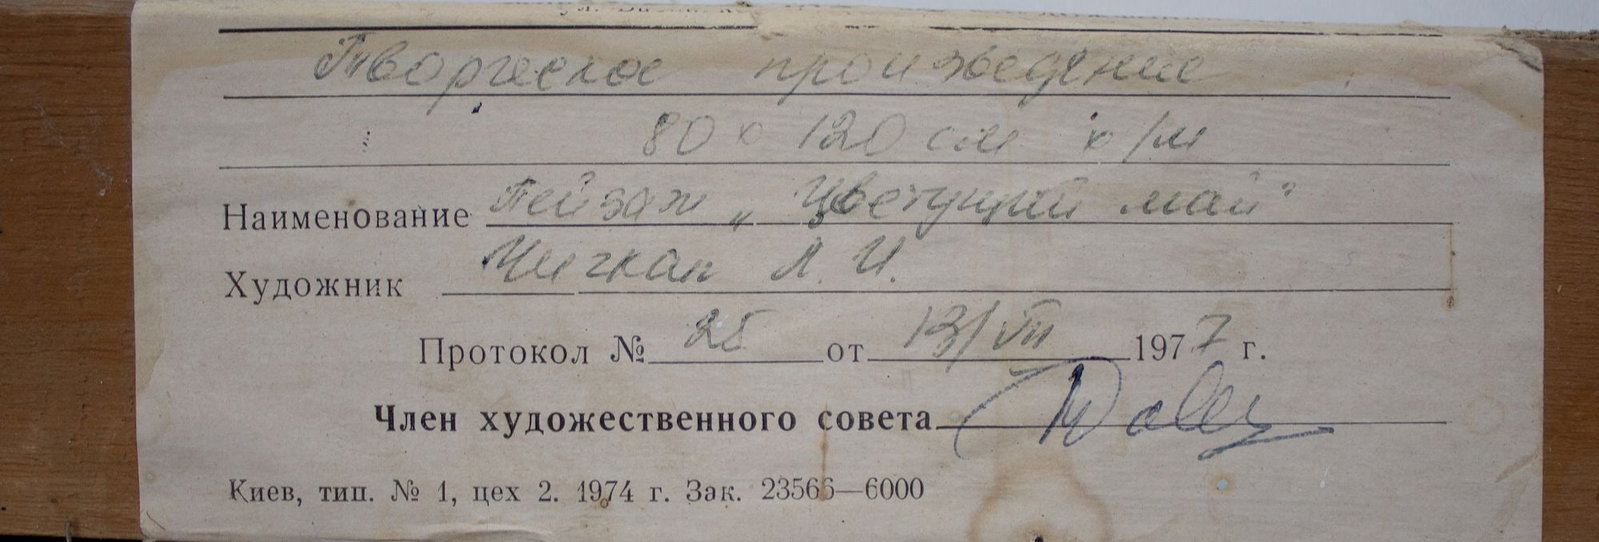 Творческое произведение
80 х 120 см х/м
Наименование Пейзаж „Цветущий май"
Художник Чичкан Л. И.
Протокол № 25 от 13/VII 1977 г.
Член художественного совета
Киев, тип. № 1, цех 2. 1974 г. Зак. 23566—6000